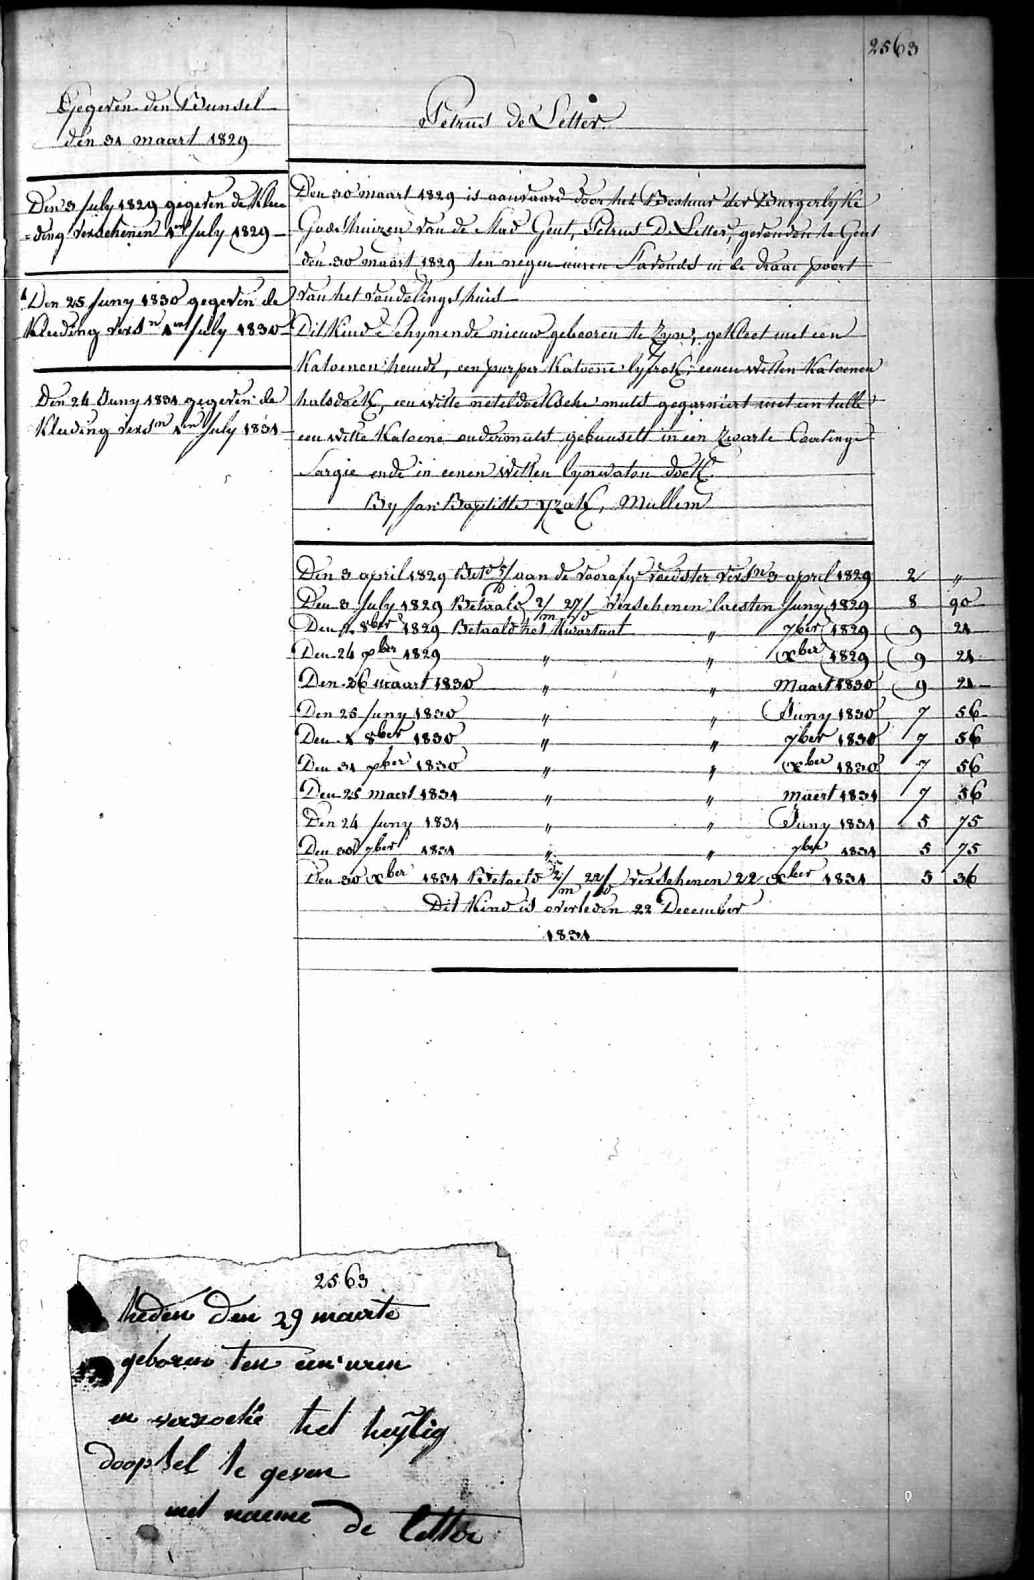 2563
Gegeven den Bunsel
den 31 maart 1829
Den 3 July 1829 gegeven de Klee
=ding verschenen 1en July 1829
Den 25 Juny 1830 gegeven de
Kleeding versn 1en July 1830
Den 24 Juny 1831 gegeven de
Kleeding versn 1en July 1831
Petrus De Letter.
Den 30 maart 1829 is aanvaard door het Bestuur der Burgerlyke
Godshuizen van de Stad Gent, Petrus De Letter, gevonden te Gent
den 30 maart 1829 ten negen uuren s'avonds in de draai poort
van het vondelingshuis
Dit Kind schynende nieuw gebooren te zyn, gekleet met een
Katoenen hemde, een purper Katoene lyfrok, eenen witten Katoenen
halsdoek, een witte neteldoeksche muts gegarniert met een tulle
een witte Katoene ondermuts gebunselt in een zwarte Coatinge
Sargie ende in eenen witten lynwaten doek.
By Jan Baptiste, Mullem
Den 3 april 1829 Bet. 5/D aan de voorafge voedster versn 3 april 1829 2 "
Den 3 July 1829 Betaald 2/m 27/D verschenen laesten Juny 1829 8 90
Den 1 8ber 1829 Betaald het Kwartaal " 7ber 1829 9 21
Den 24 xber 1829 " " xber 1829 9 21
Den 26 maart 1830 " " Maart 1830 9 21
Den 25 Juny 1830 " " Juny 1830 7 56
Den 1 8ber 1830 " " 7ber 1830 7 56
Den 31 xber 1830 " " xber 1830 7 56
Den 25 maert 1831 " " maert 1831 7 56
Den 24 Juny 1831 " " Juny 1831 5 75
Den 30 7ber 1831 " " 7ber 1831 5 75
Den 30 xber 1831 Betaeld 2/m 22/D verschenen 22 xber 1831 5 36
Dit Kind is overleden 22 December
1831
2563
heden den 29 maarte
geboren ten een uren
en verzoeke het heylig
doopsel te geven
met naeme de letter